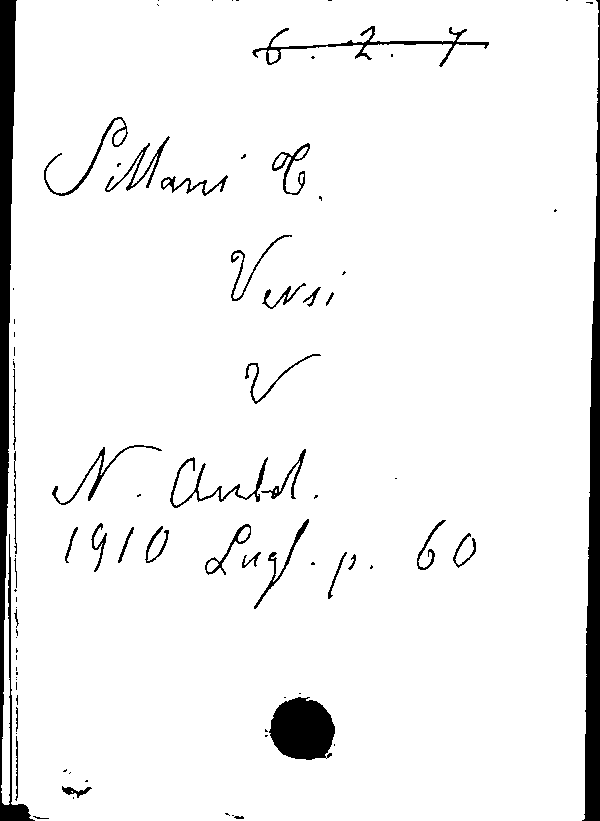 6. 2. 7
Sillani T.
Versi
V
N. Antol.
1910 Lugl. p. 60